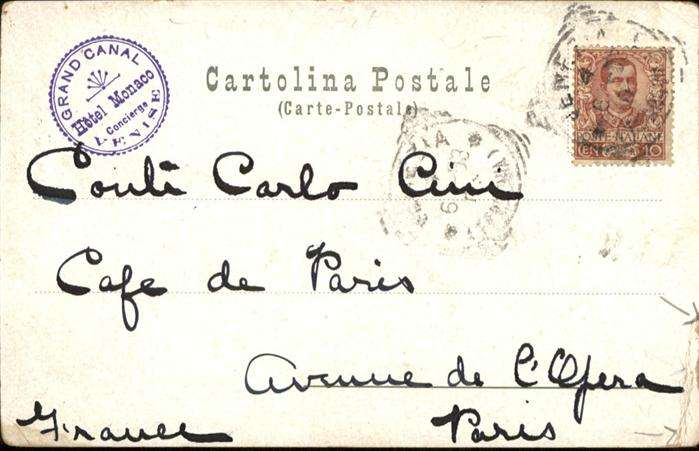 GRAND CANAL
Hôtel Monaco
Concierge
VENISE
Cartolina Postale
(Carte-Postale)
POSTE ITALIANE
10
Conti Carlo Cini
Cafe de Paris
Avenue de l'Opera
France Paris